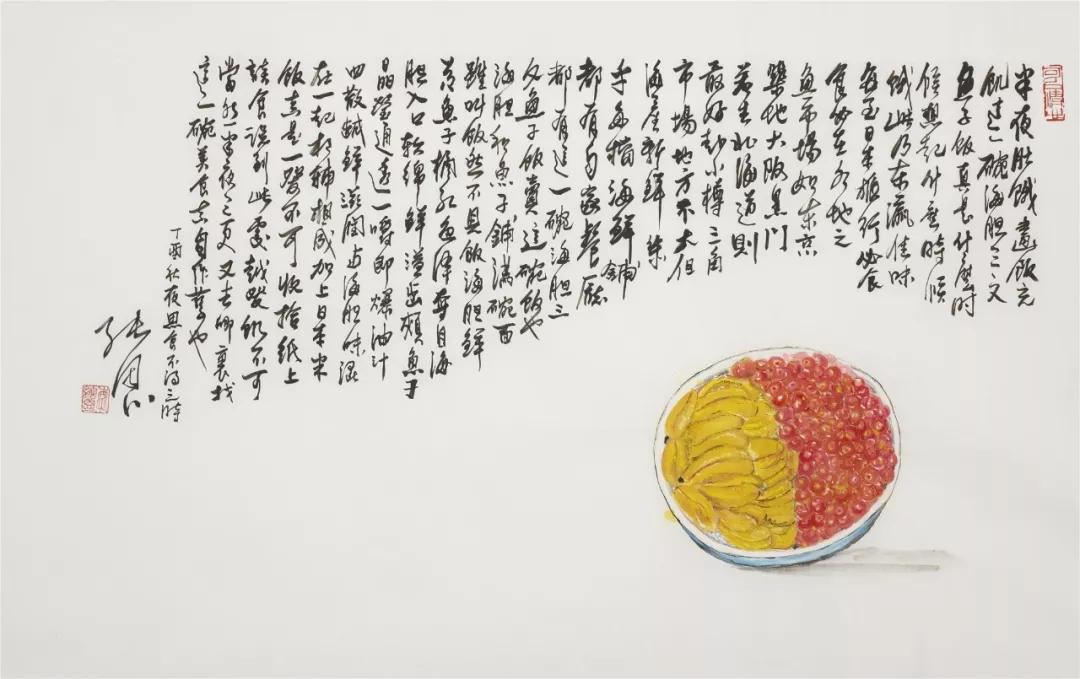 半夜肚餓畫飯充
飢這一碗海胆三文
魚子飯真是什麼時
候想起什麼時候
餓此乃東瀛佳味
每至日本旅行必食
食必至各地之
魚市場如東京
築地大阪黑門
若去北海道則
最好對小樽三角
市場地方不大但
海産新鮮集
乎多檔海鮮鋪
都有自家餐廳
都有這一碗海胆三
文魚子飯賣這碗飯也
海胆和魚子鋪滿碗面
雖叫飯然不見飯海胆鮮
黃魚子橘紅色澤奪目海
胆入口軟綿鮮溢齒頰魚子
晶瑩通透一嚼即爆油汁
四散鹹鮮滋潤與海胆味混
在一起相輔相成加上日本米
飯真是一發不可收拾紙上
談食談到此處越發餓不可
當然半夜三更又去哪裏找
這一碗美食去自作孽也
丁酉秋夜思食不得之時